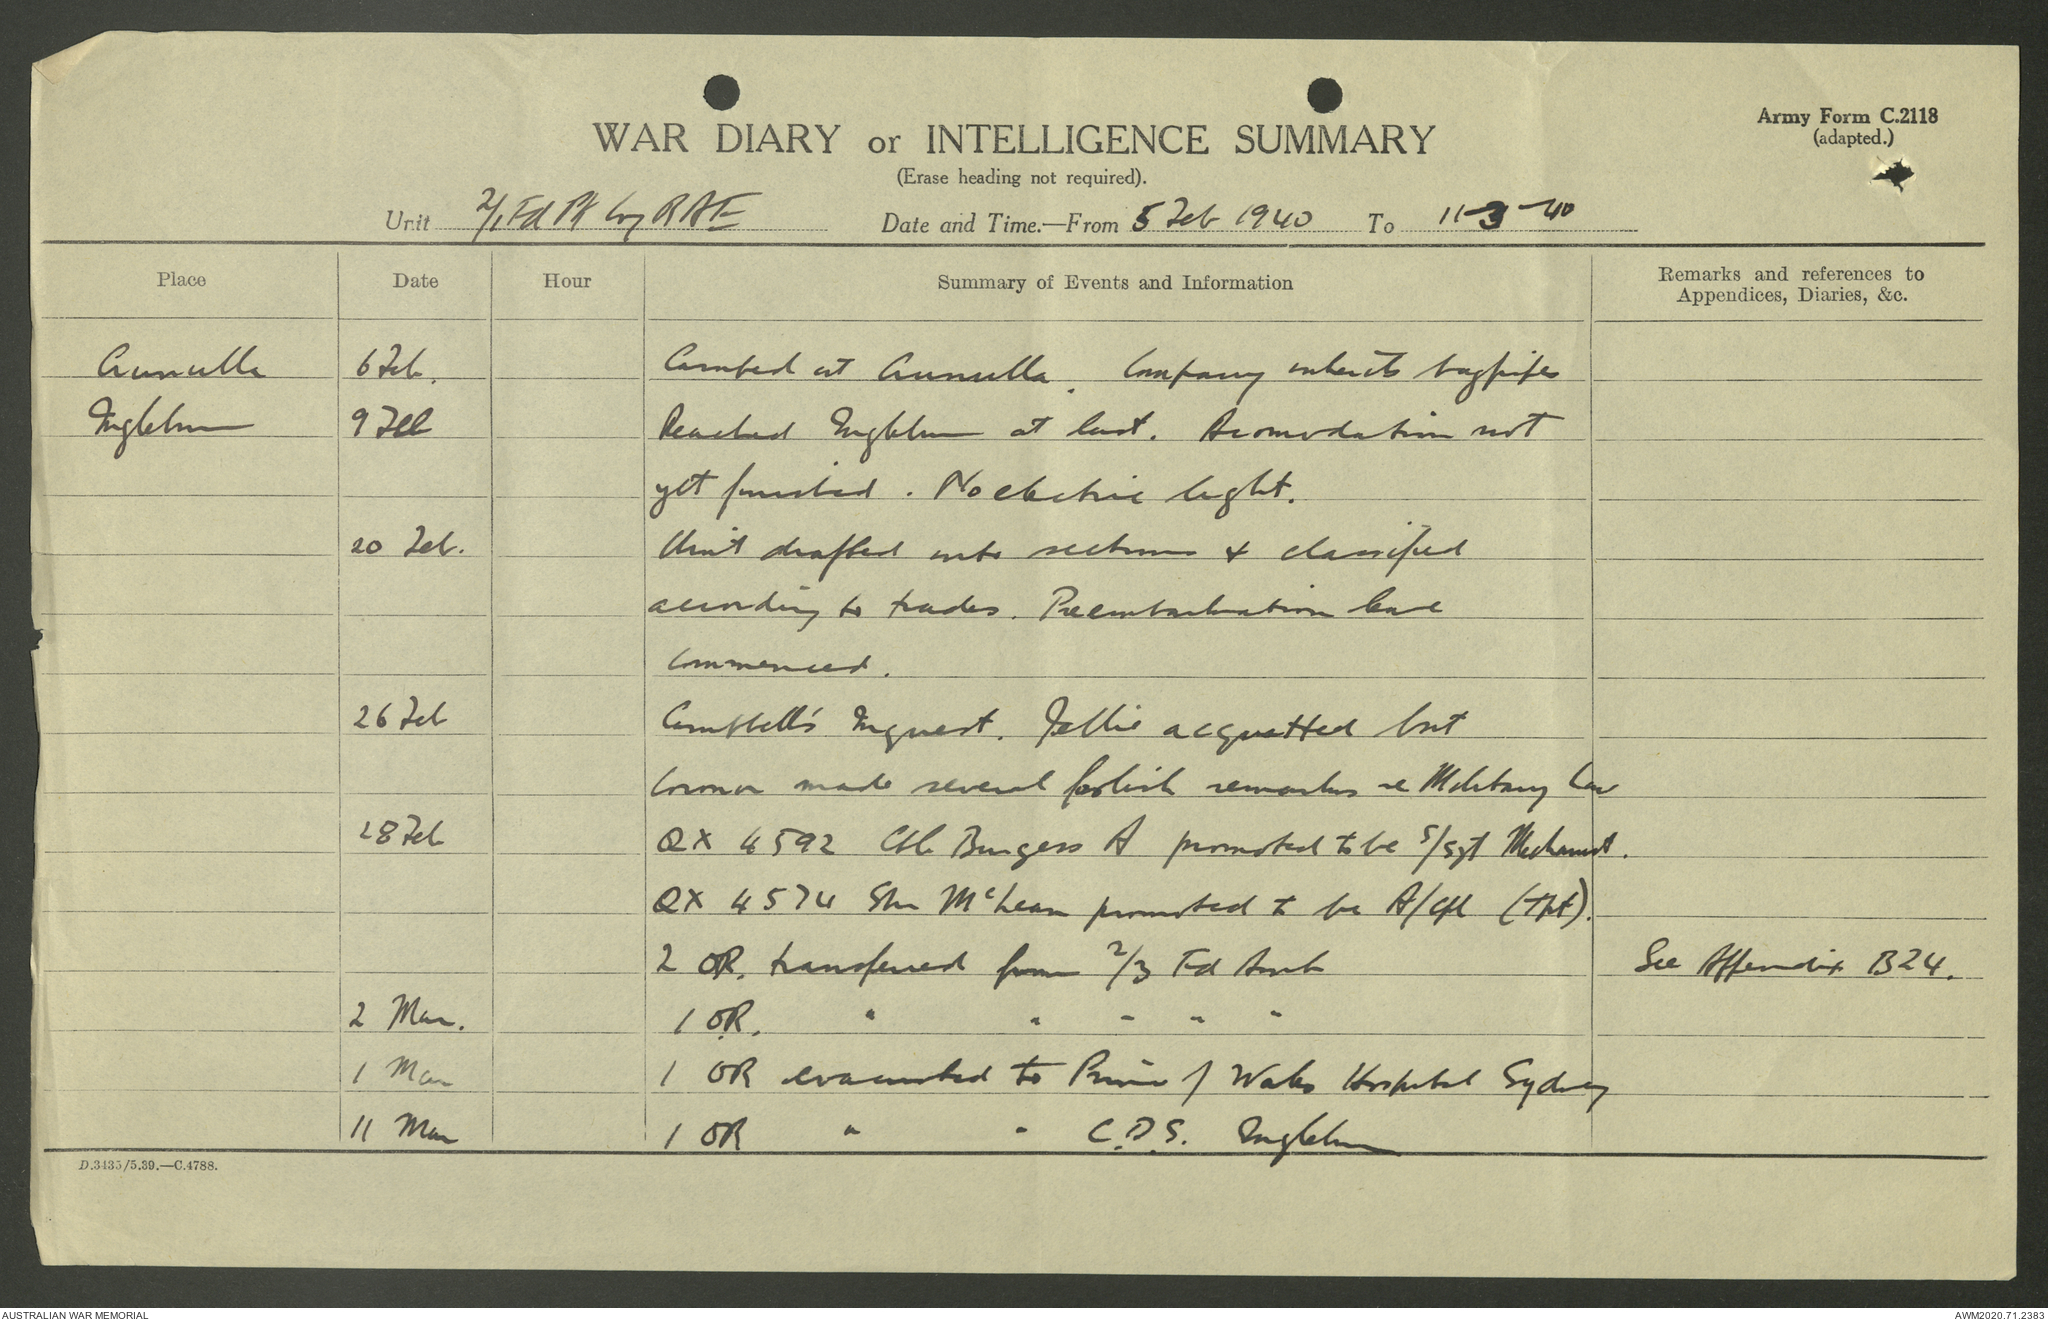 Army Form C.2118
(adapted.)
WAR DIARY or INTELLIGENCE SUMMARY
(Erase heading not required).
Unit 2/1 Fd Pk Coy RAE Date and Time.—From 5 Feb 1940 To 11-3-40
Place Date Hour Summary of Events and Information Remarks and references to Appendices, Diaries, &c.
6 Feb. Camped at Company inherits bagpipes
Ingleburn 9 Feb Reached Ingleburn at last. Acomodation not
yet finished. No electric light.
20 Feb. Unit drafted into sections & classified
according to trades. Preembarkation leave
commenced.
26 Feb Campbell's Inquest. Jellie acquitted but
Coronor made several foolish remarks re Military Law
28 Feb QX 4592 Cpl Burgess A promoted to be S/Sgt Mechanist.
QX 4574 Spr McLean promoted to be A/Cpl (Tpt).
2 OR. transferred from 2/3 Fd Amb See Appendix B24.
2 Mar. 1 OR. " " " " "
1 Mar 1 OR evacuated to Prince of Wales Hospital Sydney
11 Mar 1 OR " " C.D.S. Ingleburn
D.3435/5.39.—C.4788.
AUSTRALIAN WAR MEMORIAL AWM2020.71.2383